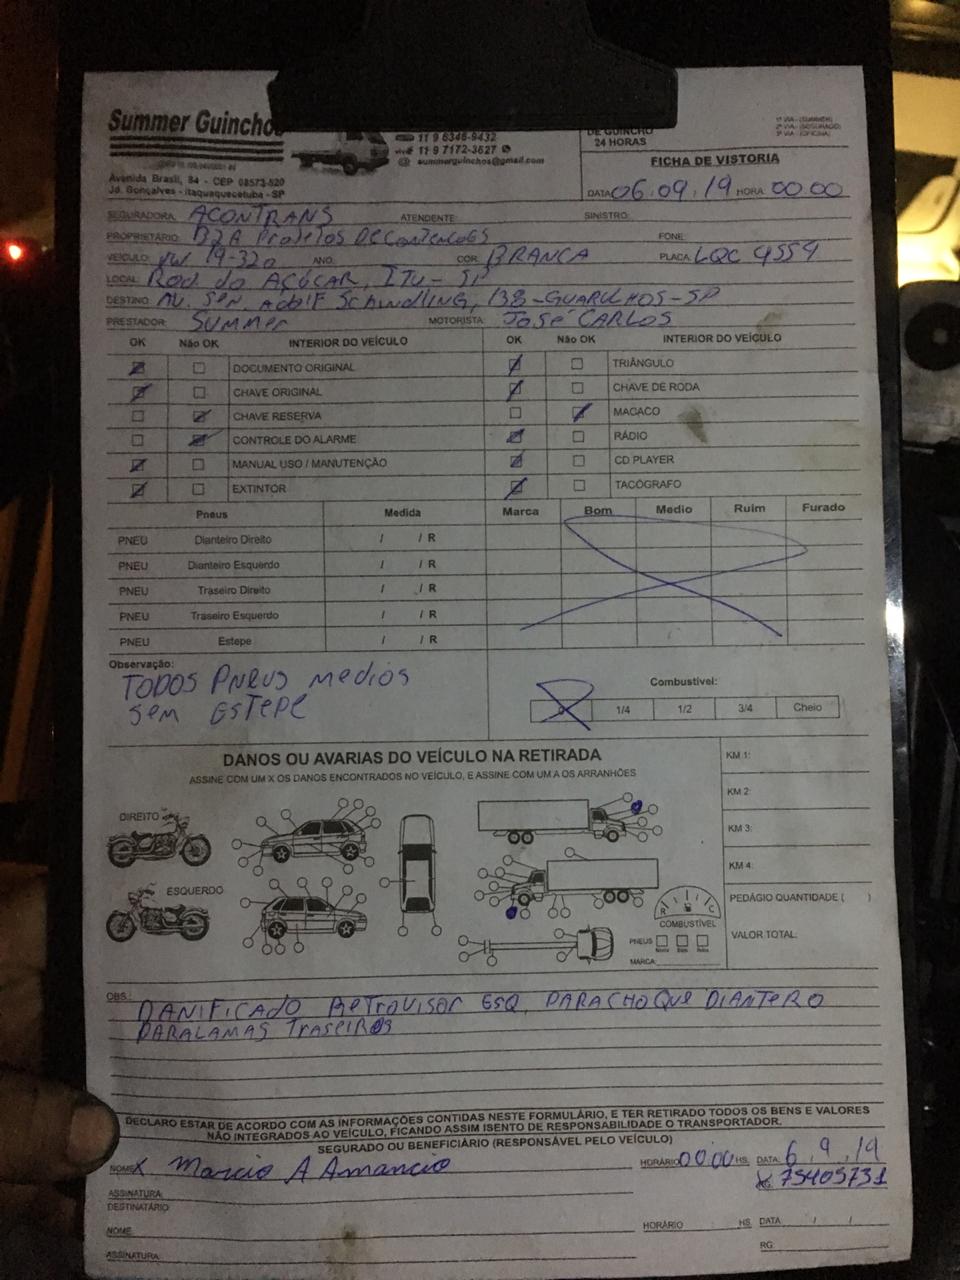 Summer Guinchos
11 9 6346-9432
11 9 7172-3627
@ summerguinchos@gmail.com
DE GUINCHO
24 HORAS
1ª VIA - (SUMMER)
2ª VIA - (SEGURADO)
3ª VIA - (OFICINA)
FICHA DE VISTORIA
Avenida Brasil, 84 - CEP 08573-520
Jd. Gonçalves - Itaquaquecetuba - SP
DATA 06.09.19 HORA: 00.00
SEGURADORA: ACONTRANS ATENDENTE: SINISTRO:
PROPRIETÁRIO: B2A Projetos DE CONTENCOES FONE:
VEÍCULO: VW 19-320 ANO: COR: BRANCA PLACA: LQC 9559
LOCAL: Rod. do AÇÚCAR, ITU-SP
DESTINO: AV. SEN. Adolf Schindling, 138-GUARULHOS-SP
PRESTADOR: Summer MOTORISTA: José CARLOS
OK Não OK INTERIOR DO VEÍCULO OK Não OK INTERIOR DO VEÍCULO
DOCUMENTO ORIGINAL TRIÂNGULO
CHAVE ORIGINAL CHAVE DE RODA
CHAVE RESERVA MACACO
CONTROLE DO ALARME RÁDIO
MANUAL USO / MANUTENÇÃO CD PLAYER
EXTINTOR TACÓGRAFO
Pneus Medida Marca Bom Medio Ruim Furado
PNEU Dianteiro Direito / / R
PNEU Dianteiro Esquerdo / / R
PNEU Traseiro Direito / / R
PNEU Traseiro Esquerdo / / R
PNEU Estepe / / R
Observação:
TODOS PNEUS medios
sem ESTEPE
Combustível:
1/4 1/2 3/4 Cheio
DANOS OU AVARIAS DO VEÍCULO NA RETIRADA
ASSINE COM UM X OS DANOS ENCONTRADOS NO VEÍCULO, E ASSINE COM UM A OS ARRANHÕES
KM 1:
KM 2:
KM 3:
KM 4:
PEDÁGIO QUANTIDADE ( )
VALOR TOTAL:
DIREITO
ESQUERDO
COMBUSTÍVEL
PNEUS
MARCA:
OBS.: DANIFICADO Retrovisor ESQ, PARACHOQUE DIANTERO
PARALAMAS TRASEIROS
DECLARO ESTAR DE ACORDO COM AS INFORMAÇÕES CONTIDAS NESTE FORMULÁRIO, E TER RETIRADO TODOS OS BENS E VALORES
NÃO INTEGRADOS AO VEÍCULO, FICANDO ASSIM ISENTO DE RESPONSABILIDADE O TRANSPORTADOR.
SEGURADO OU BENEFICIÁRIO (RESPONSÁVEL PELO VEÍCULO)
NOME X Marcio A Amancio HORÁRIO 00:00 HS. DATA: 6 . 9 . 19
ASSINATURA: RG: 75405731
DESTINATÁRIO:
NOME: HORÁRIO HS. DATA / /
ASSINATURA: RG: